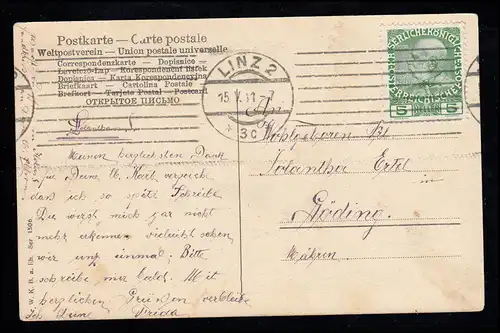 Postkarte — Carte postale
Weltpostverein — Union postale universelle
Correspondenzkarte — Dopisnice
Levelező-Lap — Korespondenční lístek
Dopisnica — Karta Korespondencyjna
Briefkaart — Cartolina Postale
Brefkort — Tarjeta Postal — Postcard
ОТКРЫТОЕ ПИСЬМО
LINZ 2
15.V.11
3c
5 5
An
Wohlgeboren Frl
Jolantha Ertel
in
Göding.
Mähren
Meinen herzlichsten Dank
für Deine lb. Karte
dass ich so spät Schreibe
Du wirst mich gar nicht
mehr erkennen vielleicht sehen
wir uns einmal. Bitte
schreibe mir bald. Mit
herzlichen Grüssen verbleibe
ich Deine Frida
Ser. 1506.